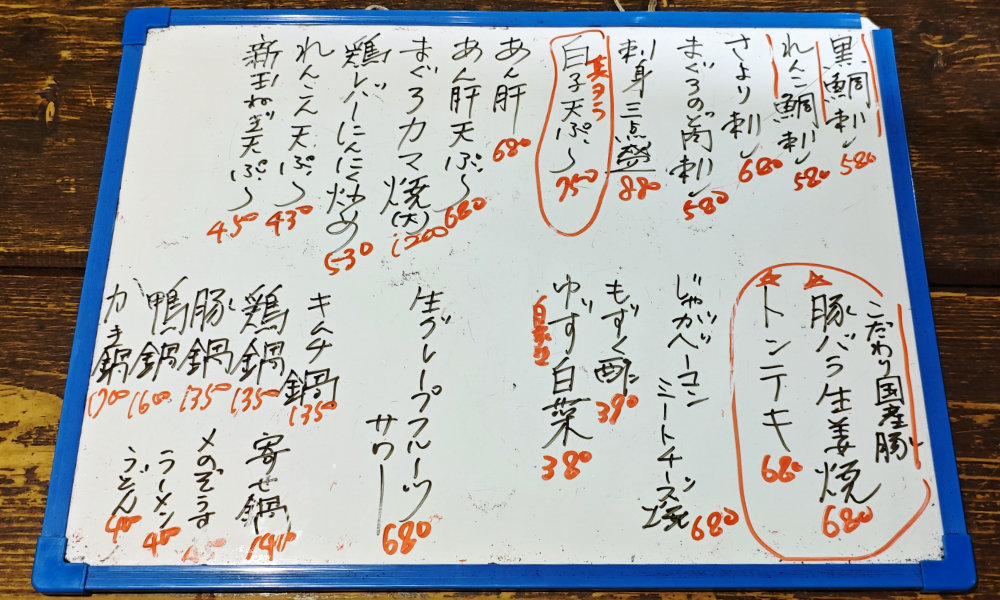 黒鯛刺し 580
れんこ鯛刺し 580
さより刺し 680
まぐろのど肉刺し 580
刺身三点盛 880
真タラ
白子天ぷら 750
あん肝 680
あん肝天ぷら 680
まぐろカマ焼(大) 1200
鶏レバーにんにく炒め 530
れんこん天ぷら 430
新玉ねぎ天ぷら 450
こだわり国産豚
豚バラ生姜焼 680
トンテキ 680
じゃがベーコン
ミートチーズ焼 680
もずく酢 390
ゆず白菜 380
自家製
生グレープフルーツ
サワー 680
キムチ鍋 1350
鶏鍋 1350
豚鍋 1350
鴨鍋 1600
かき鍋 1700
寄せ鍋 1900
〆のぞうす
ラーメン 400
うどん 400